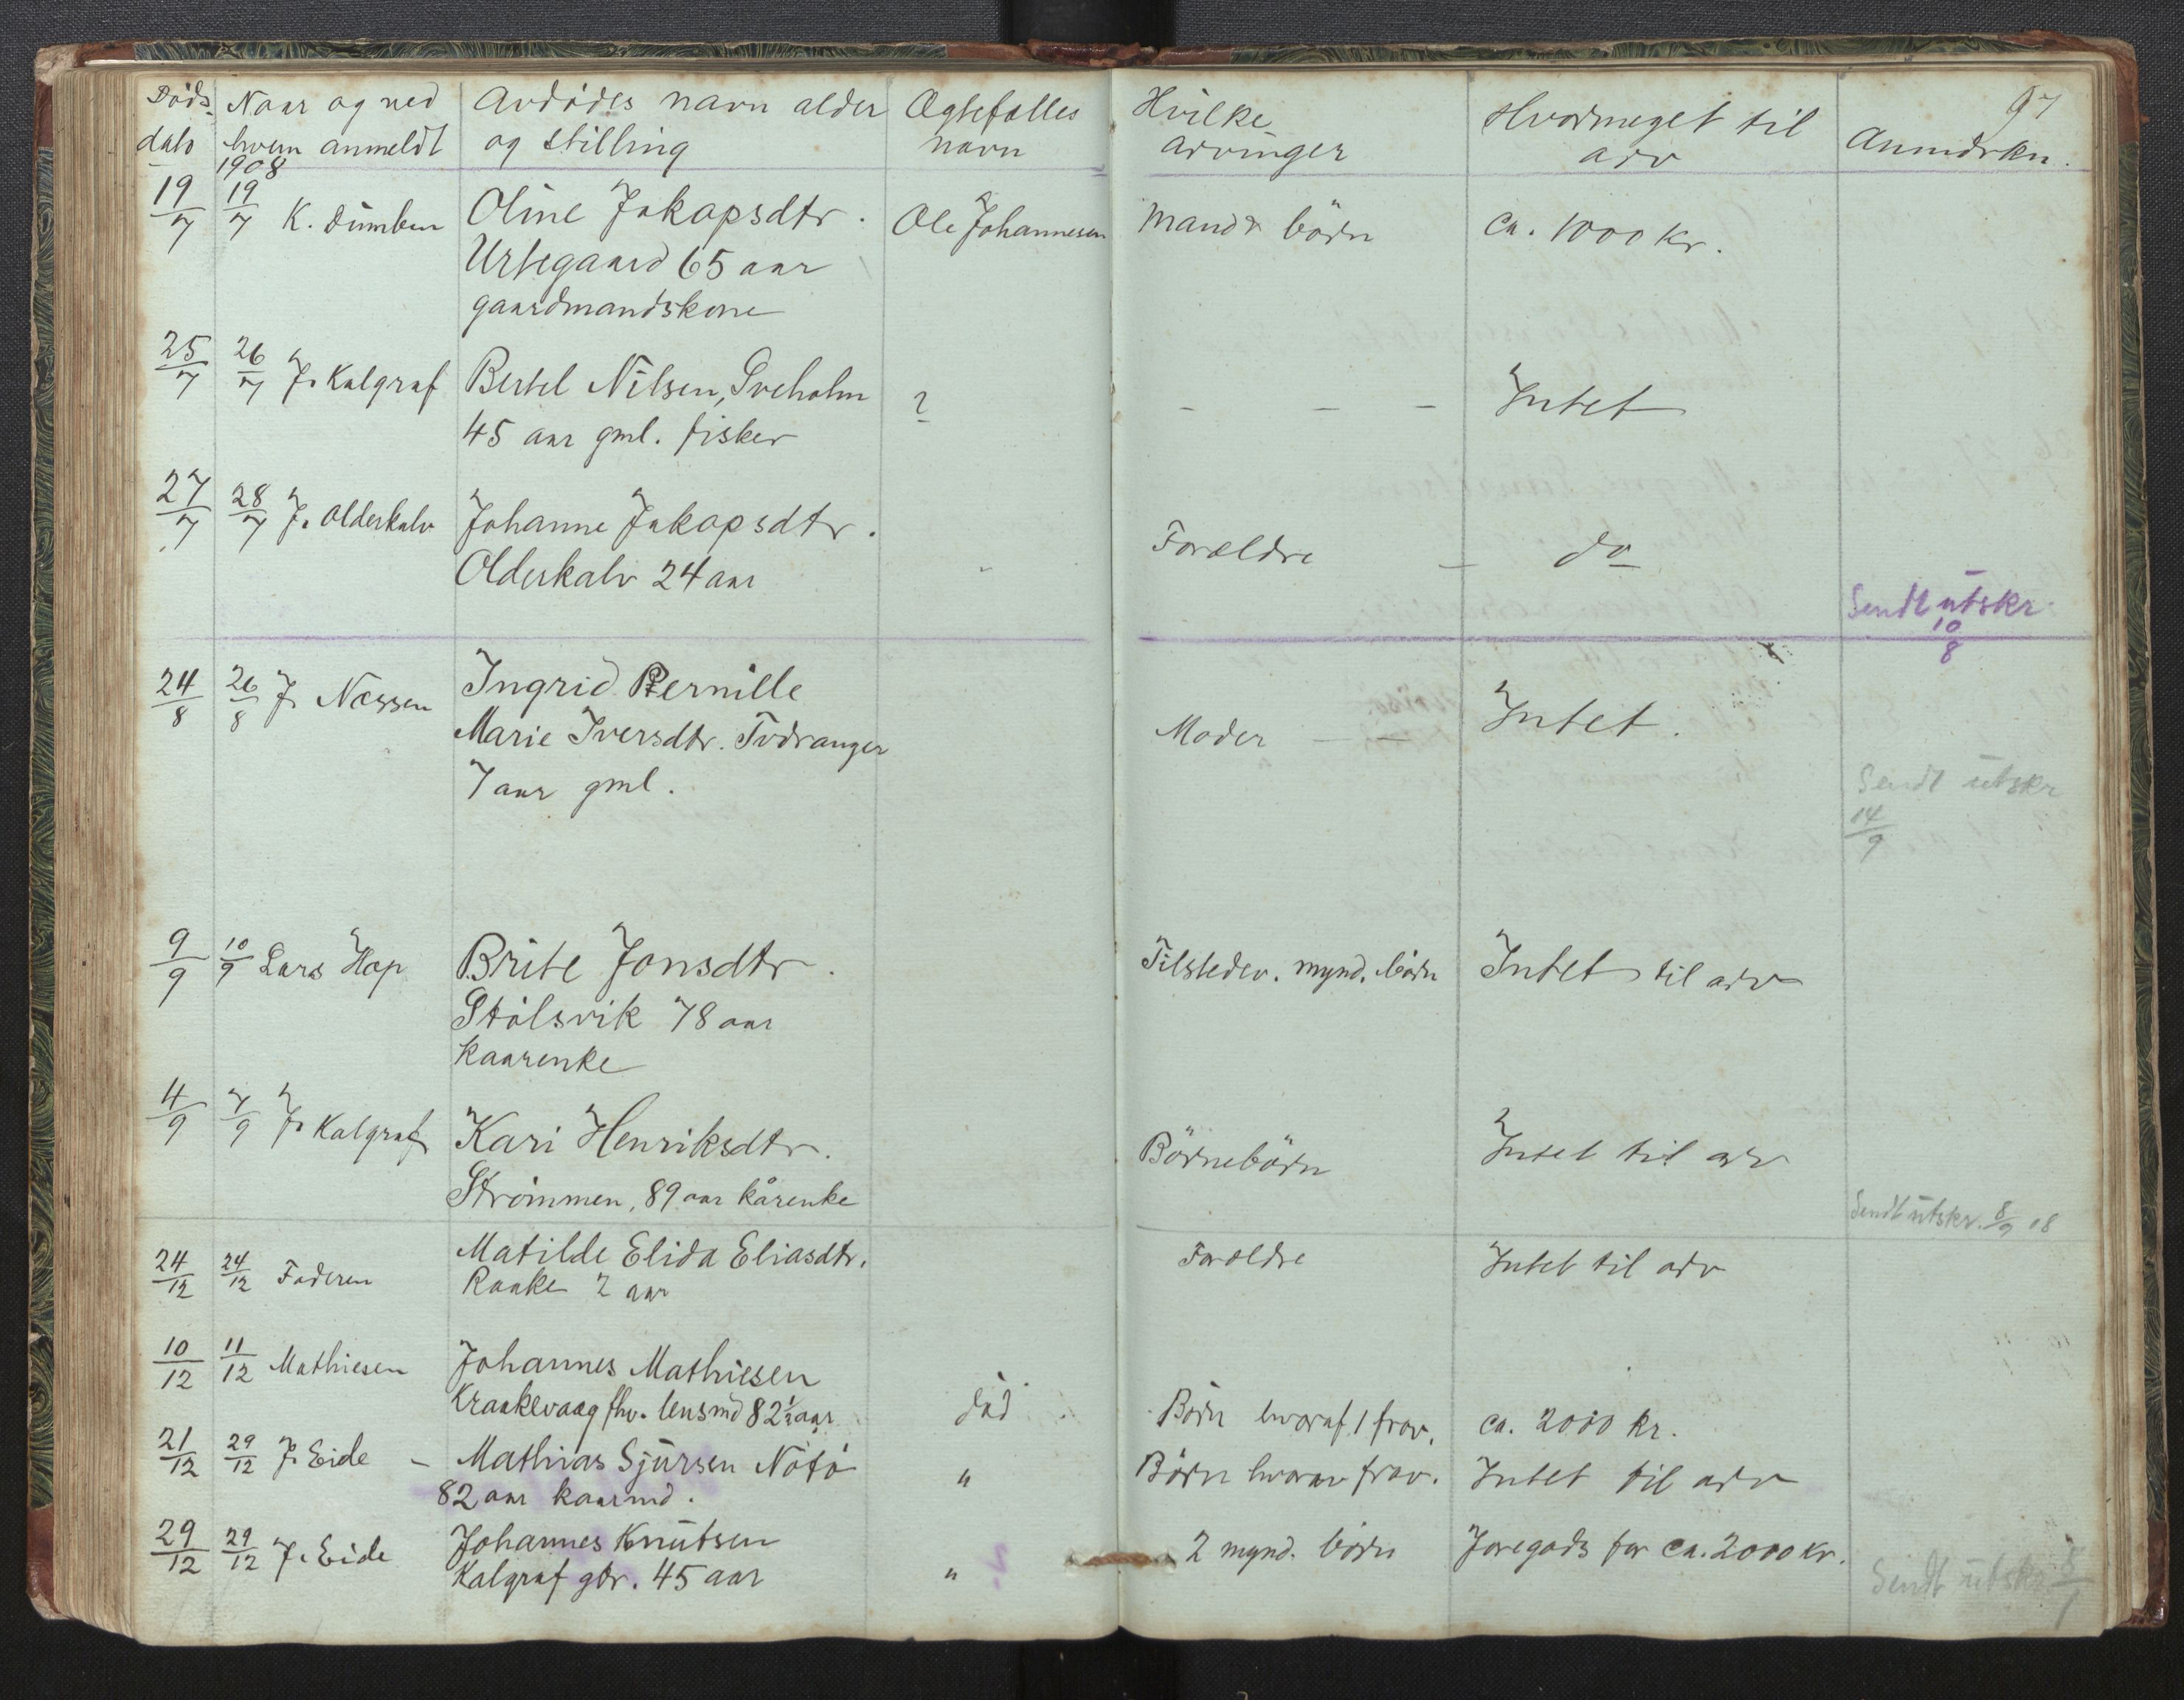 97
Døds- Naar og ved Avdødes navn alder Ægtefælles Hvilke Hvormeget til Anmærkn.
dato hvem anmeldt og stilling navn arvinger arv
1908
19/7 19/7 K. Dumben Oline Jakopsdtr. Ole Johannesen Mand & børn Ca. 1000 Kr.
Urtegaard 65 aar
gaardmandskone
25/7 26/7 J. Kalgraf Bertel Nilsen, Sveholm ? - - - Intet
45 aar gml. fisker
27/7 28/7 J. Olderkalv Johanne Jakopsdtr. Forældre - do -
Olderkalv 24 aar
Sendt utskr.
10/8
24/8 26/8 J. Næssen Ingrid Pernille Moder - - Intet.
Marie Iversdtr. Tvdranger
7 aar gml.
Sendt utskr
14/9
9/9 10/9 Lars Hop Brite Jonsdtr. Tilstedev. mynd. børn Intet til arv
Stølsvik 78 aar
Kaarenke
4/9 7/9 J. Kalgraf Kari Henriksdtr. Børnebørn Intet til arv
Strømmen, 89 aar kårenke
Sendt utskr. 8/9 08
24/12 24/12 Faderen Matilde Elida Eliasdtr. Forældre Intet til arv
Raake 2 aar
10/12 11/12 Mathiesen Johannes Mathiesen
Kraakevaag fhv. lensmd 82½ aar død Børn hvoraf 1 frav. ca. 2000 kr.
21/12 29/12 J. Eide - Mathias Sjursen Nötö " Børn hvorav frav. Intet til arv
82 aar kaarmd.
29/12 29/12 J. Eide Johannes Knutsen 2 mynd. børn Joregods for ca. 2000 kr.
Kalgraf gbr. 45 aar "
Sendt utskr 5/1